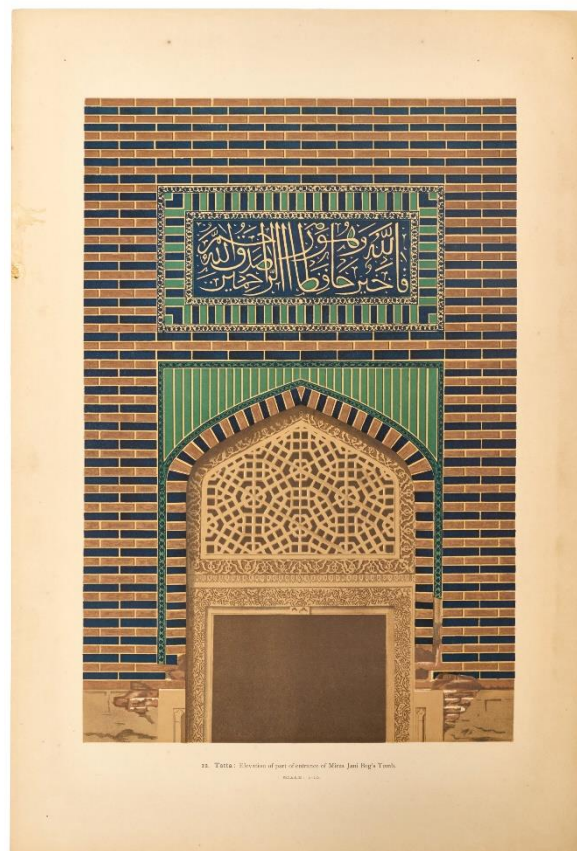 فالله خير حافظا وهو ارحم الراحمين صدق الله
22. Tatta: Elevation of part of entrance of Mirza Jani Beg's Tomb.
SCALE.